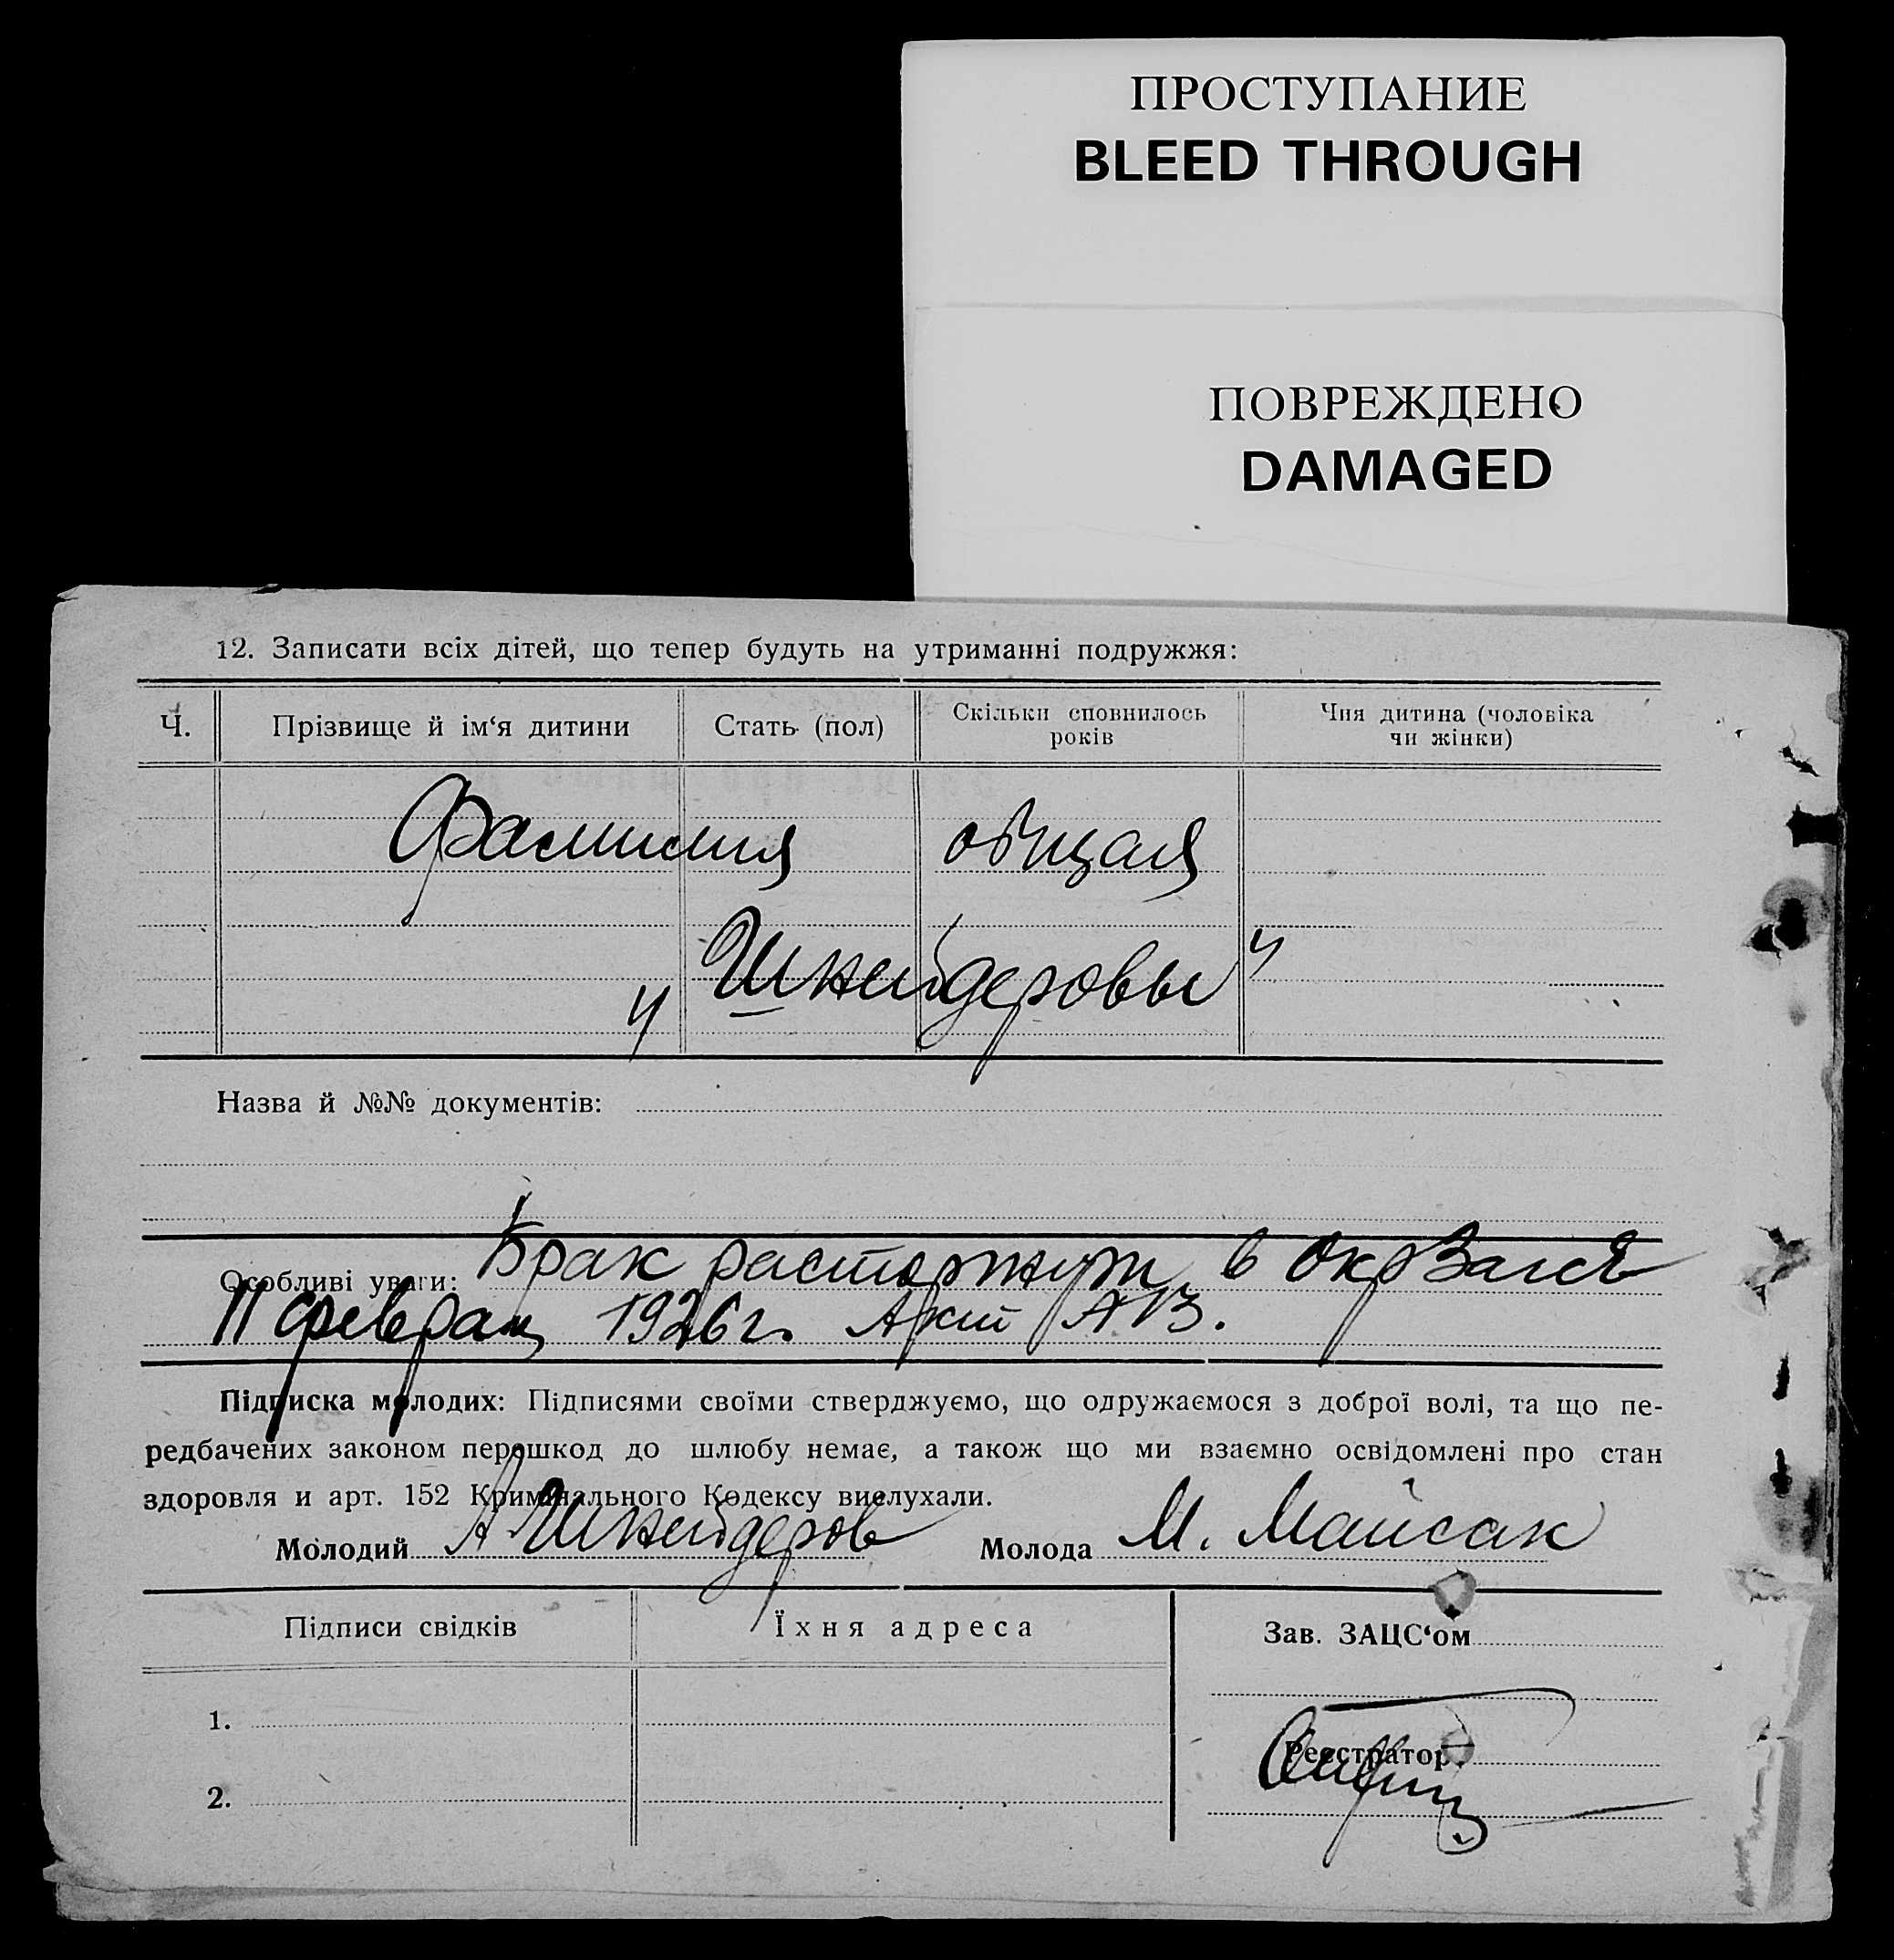 ПРОСТУПАНИЕ
BLEED THROUGH
ПОВРЕЖДЕНО
DAMAGED
12. Записати всіх дітей, що тепер будуть на утриманні подружжя:
Ч. Прізвище й ім‘я дитини Стать (пол) Скільки сповнилось років Чия дитина (чоловіка чи жінки)
Фамилия общая
„Шнейдеровы“
Назва й №№ документів:
Особливі уваги: Брак расторгнут в ОкрЗагсе
11 февраля 1926 г. Акт
Підписка молодих: Підписями своїми стверджуємо, що одружаємося з доброї волі, та що пе-
редбачених законом перешкод до шлюбу немає, а також що ми взаємно освідомлені про стан
здоровля и арт. 152 Кримінального Кодексу вислухали.
Молодий А Шнейдеров Молода М. Майсак
Підписи свідків Їхня адреса Зав. ЗАЦС‘ом
1.
Реєстратор
2.